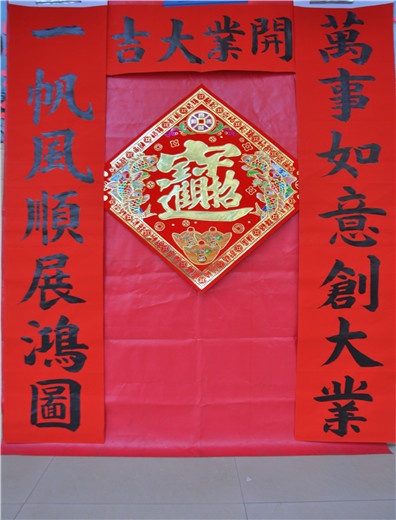 開業大吉
萬事如意創大業
一帆風順展鴻圖
招財進寶